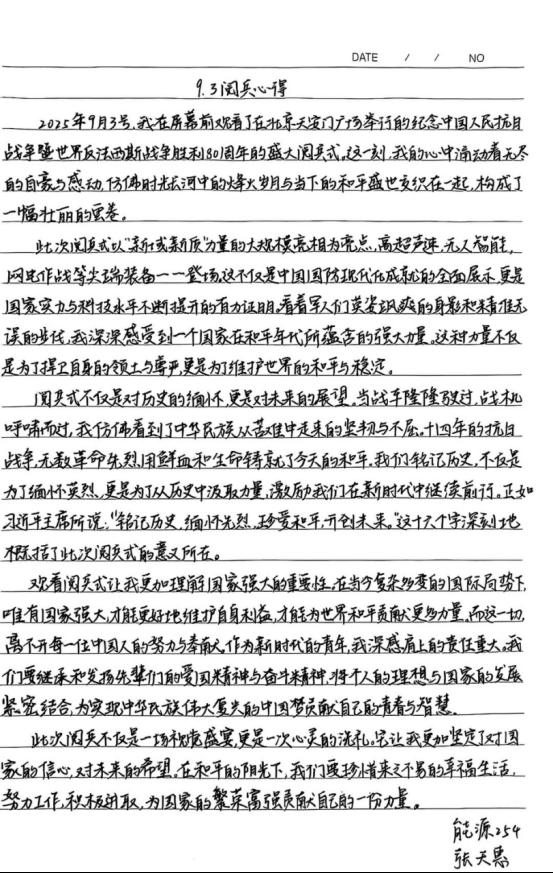 DATE / / NO
9.3阅兵心得
2025年9月3号,我在屏幕前观看了在北京天安门广场举行的纪念中国人民抗日
战争暨世界反法西斯战争胜利80周年的盛大阅兵式。这一刻,我的心中涌动着无尽
的自豪与感动,仿佛时光长河中的烽火岁月与当下的和平盛世交织在一起,构成了
一幅壮丽的画卷。
此次阅兵式以“新域新质”力量的大规模亮相为亮点,高超声速、无人智能,
网电作战等尖端装备一一登场。这不仅是中国国防现代化成就的全面展示,更是
国家实力与科技水平不断提升的有力证明。看着军人们英姿飒爽的身影和精准无
误的步伐,我深深感受到一个国家在和平年代所蕴含的强大力量。这种力量不仅
是为了捍卫自身的领土与尊严,更是为了维护世界的和平与稳定。
阅兵式不仅是对历史的缅怀,更是对未来的展望。当战车隆隆驶过,战机
呼啸而过,我仿佛看到了中华民族从苦难中走来的坚韧与不屈。十四年的抗日
战争,无数革命先烈用鲜血和生命铸就了今天的和平。我们铭记历史,不仅是
为了缅怀英烈,更是为了从历史中汲取力量,激励我们在新时代中继续前行。正如
习近平主席所说:“铭记历史,缅怀先烈,珍爱和平,开创未来。”这十六个字深刻地
概括了此次阅兵式的意义所在。
观看阅兵式让我更加理解国家强大的重要性。在当今复杂多变的国际局势下,
唯有国家强大,才能更好地维护自身利益,才能为世界和平贡献更多力量。而这一切,
离不开每一位中国人的努力与奉献。作为新时代的青年,我深感肩上的责任重大。我
们要继承和发扬先辈们的爱国精神与奋斗精神,将个人的理想与国家的发展
紧密结合,为实现中华民族伟大复兴的中国梦贡献自己的青春与智慧。
此次阅兵不仅是一场视觉盛宴,更是一次心灵的洗礼。它让我更加坚定了对国
家的信心,对未来的希望。在和平的阳光下,我们要珍惜来之不易的幸福生活,
努力工作,积极进取,为国家的繁荣富强贡献自己的一份力量。
能源254
张天惠